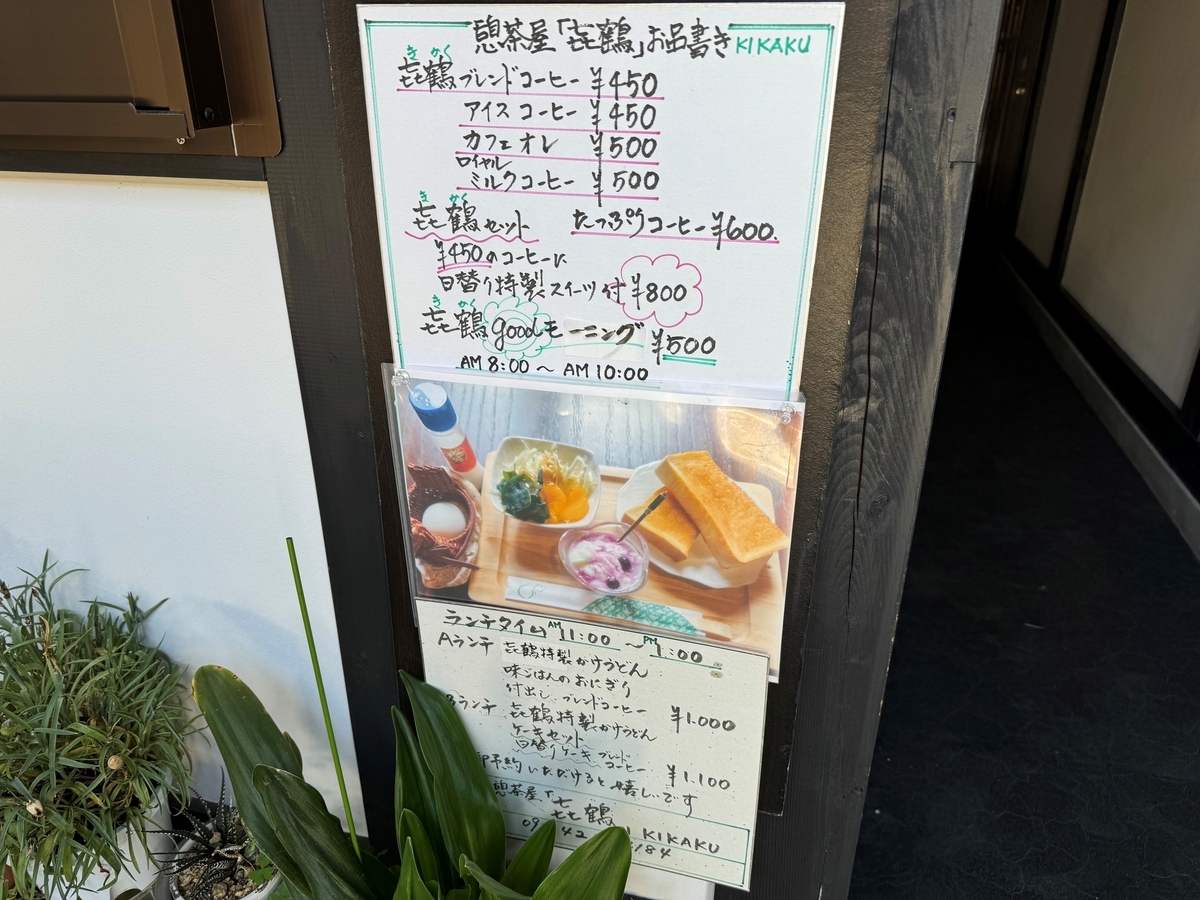 憩茶屋「㐂鶴」お品書き KIKAKU
きかく
㐂鶴ブレンドコーヒー ¥450
アイスコーヒー ¥450
カフェオレ ¥500
ロイヤル
ミルクコーヒー ¥500
きかく
㐂鶴セット たっぷりコーヒー ¥600.
¥450のコーヒーに
日替り特製スイーツ付 ¥800
きかく
㐂鶴goodモーニング ¥500
AM 8:00 〜 AM 10:00
ランチタイム AM 11:00 〜 PM 1:00
Aランチ 㐂鶴特製かけうどん
味ごはんのおにぎり
付出し・ブレンドコーヒー ¥1.000
Bランチ 㐂鶴特製かけうどん
ケーキセット
日替りケーキ ブレンドコーヒー ¥1.100
御予約いただけると嬉しいです
憩茶屋「㐂鶴」KIKAKU
09 42 184